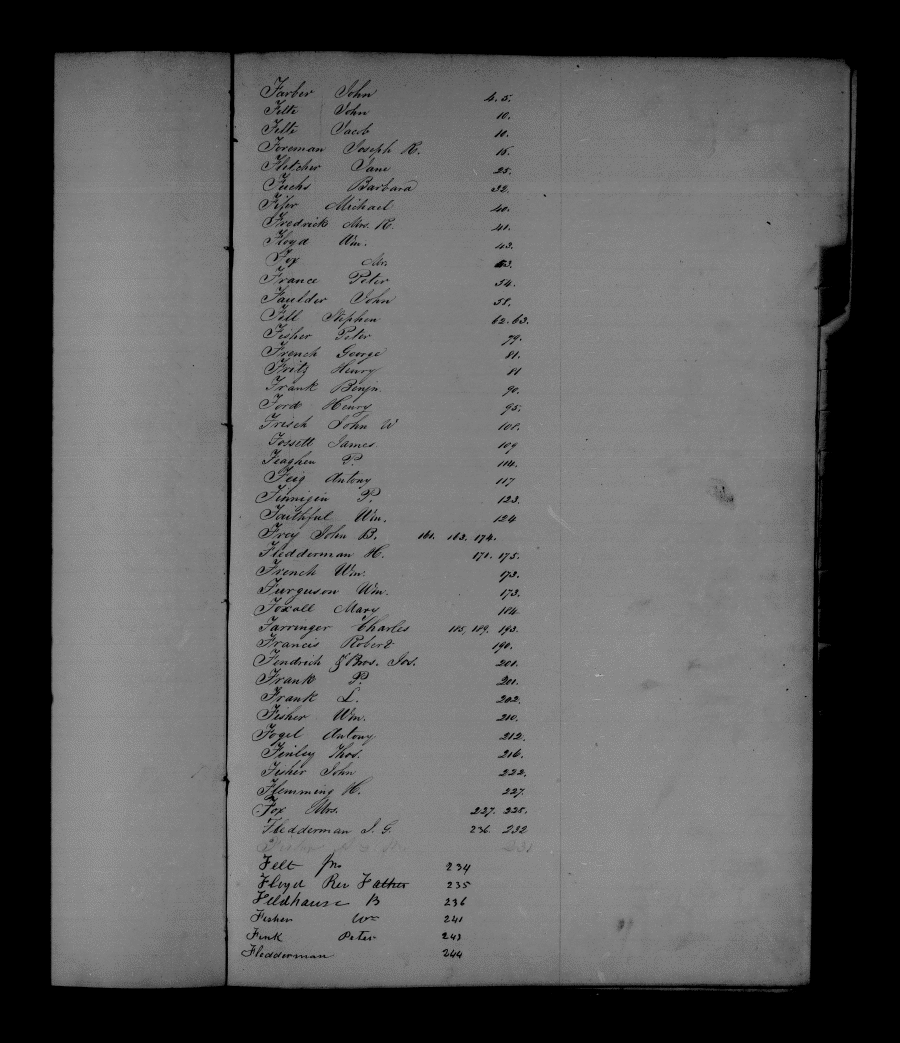 Farber John 4. 5.
Felte John 10.
Felte Jacob 10.
Foreman Joseph R. 16.
Fletcher Jane 25.
Fuchs Barbara 32.
Fifer Michael 40.
Fredrick Mrs. R. 41.
Floyd Wm. 43.
Fox Mr. 53.
France Peter 54.
Faulder John 58.
Fell Stephen 62. 63.
Fisher Peter 79.
French George 81.
Fritz Henry 81
Frank Benjn. 90.
Ford Henry 95.
Frisch John W 108.
Fossett James 109
Feaghen P. 114.
Feig Antony 117
Finnigin P. 123.
Faithful Wm. 124
Frey John B. 161. 163. 174.
Fledderman H. 171. 175.
French Wm. 173.
Furguson Wm. 173.
Foxall Mary 184.
Farringer Charles 185, 189. 193.
Francis Robert 190.
Fendrich & Bros. Jos. 201.
Frank P. 201.
Frank L. 202.
Fisher Wm. 210.
Fogel Antony 212.
Finley Thos. 216.
Fisher John 222.
Flemming H. 227.
Fox Mrs. 227. 228.
Fledderman J. G. 236. 232
231
Felt Jno 234
Floyd Rev Father 235
Feldhause B 236
Fisher Wm 241
Fink Peter 243
Fledderman 244